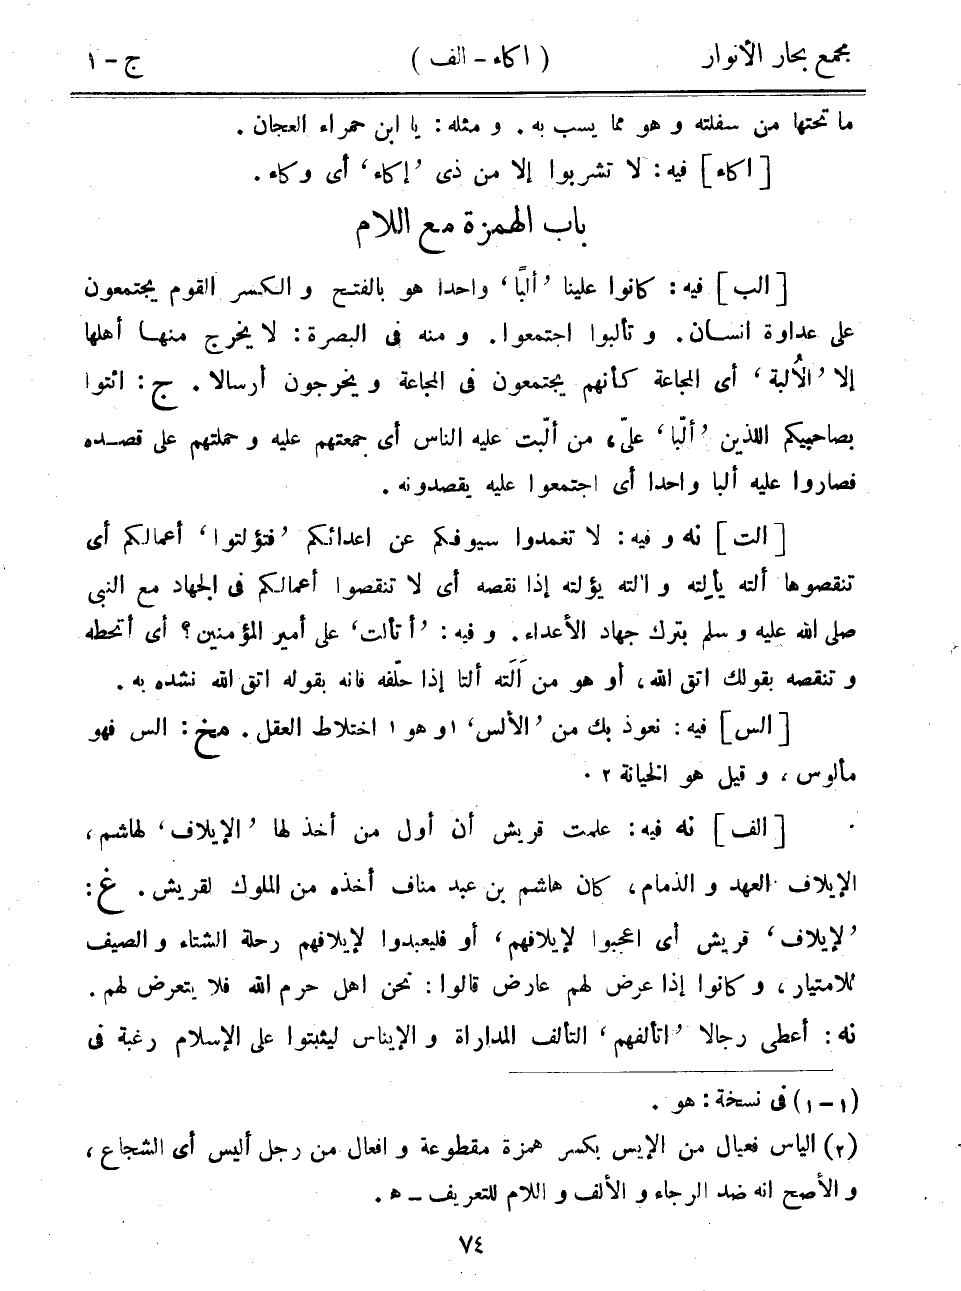 مجمع بحار الأنوار ( اكاء - الف ) ج - ١
ما تحتها من سفلته و هو مما يسب به. و مثله: يا ابن حمراء العجان .
[اكاء] فيه: لا تشربوا إلا من ذى ’إكاء‘ أى وكاء .
باب الهمزة مع اللام
[الب] فيه: كانوا علينا ’ألبًا‘ واحدا هو بالفتح و الكسر القوم يجتمعون
على عداوة انسان. و تألبوا اجتمعوا. و منه فى البصرة: لا يخرج منها أهلها
إلا ’الأُلبة‘ أى المجاعة كأنهم يجتمعون فى المجاعة و يخرجون أرسالا. ج: ائتوا
بصاحبيكم اللذين ’ألّبا‘ علىّ، من ألّبت عليه الناس أى جمعتهم عليه و حملتهم على قصده
فصاروا عليه ألبا واحدا أى اجتمعوا عليه يقصدونه .
[الت] نه و فيه: لا تغمدوا سيوفكم عن اعدائكم ’فتؤلتوا‘ أعمالكم أى
تنقصوها ألته يألِته و الته يؤلته إذا نقصه أى لا تنقصوا أعمالكم فى الجهاد مع النبى
صلى الله عليه و سلم بترك جهاد الأعداء. و فيه: ’أتألت‘ على أمير المؤمنين؟ أى أتحطه
و تنقصه بقولك اتق الله، أو هو من أَلَته ألتا إذا حلّفه فانه بقوله اتق الله نشده به .
[الس] فيه: نعوذ بك من ’الألس‘ ١و هو ١ اختلاط العقل. مخ: الس فهو
مألوس، و قيل هو الخيانة ٢ .
[الف] نه فيه: علمت قريش أن أول من أخذ لها ’الإيلاف‘ لهاشم،
الإيلاف العهد و الذمام، كان هاشم بن عبد مناف أخذه من الملوك لقريش. غ:
’لإيلاف‘ قريش أى اعجبوا لإيلافهم، أو فليعبدوا لإيلافهم رحلة الشتاء و الصيف
للامتيار، و كانوا إذا عرض لهم عارض قالوا: نحن اهل حرم الله فلا يتعرض لهم .
نه: أعطى رجالا ’اتألفهم‘ التألف المداراة و الإيناس ليثبتوا على الإسلام رغبة فى
(١-١) فى نسخة: هو .
(٢) الياس فعيال من الإيس بكسر همزة مقطوعة و افعال من رجل أليس أى الشجاع،
و الأصح انه ضد الرجاء و الألف و اللام للتعريف - ه .
٧٤